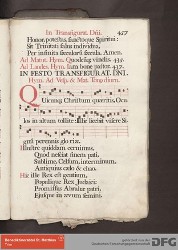 In Transfigurat. Dni. 457
Honor, potestas, sanctoque Spiritui:
Sit Trinitati salus individua,
Per infinita seculorū secula. Amen.
Ad Matut. Hymn. Quicunque vindis. 437.
Ad Laudes. Hymn. 437.
IN FESTO TRANSFIGURAT. DNI.
Hymn. Ad Vesp. & Mat. Tempdium.
Quicunq; Christum queritis, Ocu
los in altum tollite: illic licebit visere Si-
gnū perennis gloriæ.
Illustre quiddam cernimus,
Quod nesciat finem pati,
Sublime, Celsum, interminum,
Antiquius cælo & chao.
Hic ille Rex est gentium,
Populique Rex Judaici:
Promissus Abrahæ patri,
Ejusque in ævum semini.
DFG